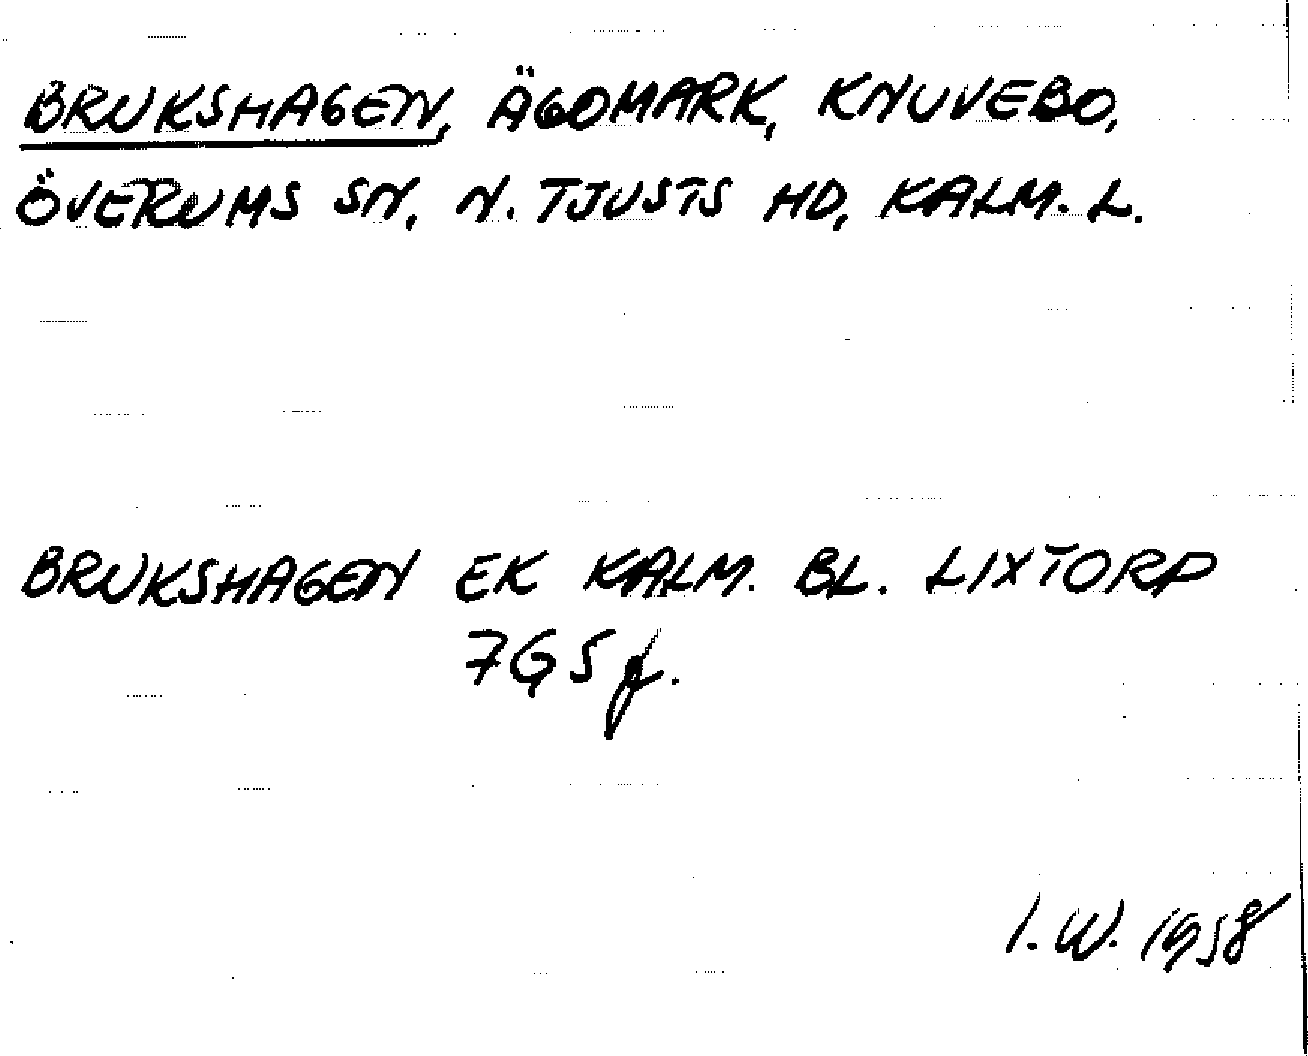 BRUKSHAGEN, ÄGOMARK, KNUVEBO,
ÖVERUMS SN, N. TJUSTS HD, KALM. L.
BRUKSHAGEN EK KALM. BL. LIXTORP
7G5f.
I.W. 1958